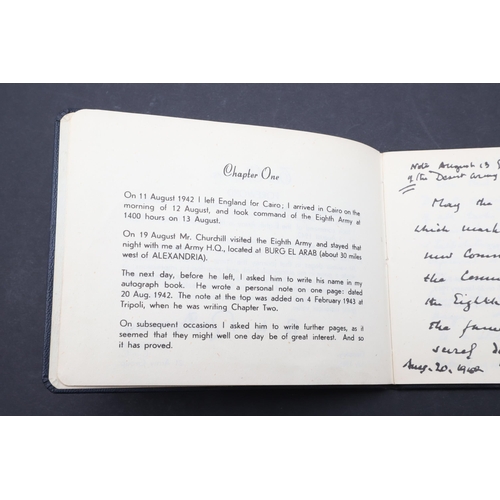 Chapter One
On 11 August 1942 I left England for Cairo; I arrived in Cairo on the
morning of 12 August, and took command of the Eighth Army at
1400 hours on 13 August.
On 19 August Mr. Churchill visited the Eighth Army and stayed that
night with me at Army H.Q., located at BURG EL ARAB (about 30 miles
west of ALEXANDRIA).
The next day, before he left, I asked him to write his name in my
autograph book. He wrote a personal note on one page: dated
20 Aug. 1942. The note at the top was added on 4 February 1943 at
Tripoli, when he was writing Chapter Two.
On subsequent occasions I asked him to write further pages, as it
seemed that they might well one day be of great interest. And so
it has proved.
Note August 13
of the Desert Army
May the
which mark
new Comm
the Comm
the Eighth
the fam
Aug. 20. 1942